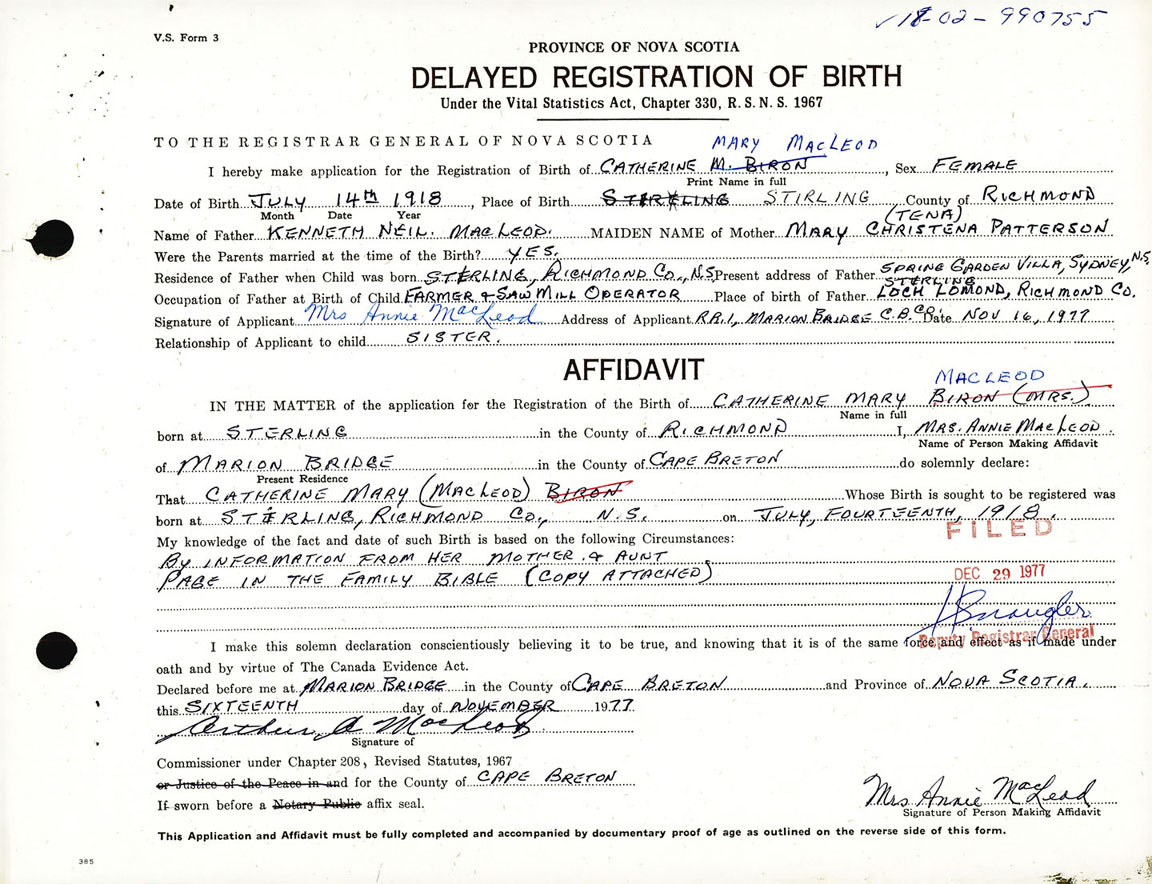 18-02-990755
V.S. Form 3
PROVINCE OF NOVA SCOTIA
DELAYED REGISTRATION OF BIRTH
Under the Vital Statistics Act, Chapter 330, R.S.N.S. 1967
TO THE REGISTRAR GENERAL OF NOVA SCOTIA MARY MACLEOD
I hereby make application for the Registration of Birth of CATHERINE M. BIRON, Sex FEMALE
Print Name in full
Date of Birth JULY 14th 1918, Place of Birth STERLING STIRLING County of RICHMOND
Month Date Year (TENA)
Name of Father KENNETH NEIL. MACLEOD. MAIDEN NAME of Mother MARY CHRISTENA PATTERSON
Were the Parents married at the time of the Birth? YES.
SPRING GARDEN VILLA, SYDNEY, N.S.
Residence of Father when Child was born STERLING, RICHMOND CO., N.S. Present address of Father
STERLING
Occupation of Father at Birth of Child FARMER & SAW MILL OPERATOR Place of birth of Father LOCH LOMOND, RICHMOND CO.
Signature of Applicant Mrs Annie MacLeod Address of Applicant R.R.1, MARION BRIDGE C.B. CO. Date NOV 16, 1977
Relationship of Applicant to child SISTER.
AFFIDAVIT
MACLEOD
IN THE MATTER of the application for the Registration of the Birth of CATHERINE MARY BIRON (MRS.)
Name in full
born at STERLING in the County of RICHMOND I, MRS. ANNIE MACLEOD.
Name of Person Making Affidavit
of MARION BRIDGE in the County of CAPE BRETON do solemnly declare:
Present Residence
That CATHERINE MARY (MACLEOD) BIRON Whose Birth is sought to be registered was
born at STIRLING, RICHMOND CO., N.S. on JULY, FOURTEENTH, 1918.
FILED
My knowledge of the fact and date of such Birth is based on the following Circumstances:
BY INFORMATION FROM HER MOTHER & AUNT
PAGE IN THE FAMILY BIBLE (COPY ATTACHED)
DEC 29 1977
Deputy Registrar General
I make this solemn declaration conscientiously believing it to be true, and knowing that it is of the same force and effect as if made under
oath and by virtue of The Canada Evidence Act.
Declared before me at MARION BRIDGE in the County of CAPE BRETON and Province of NOVA SCOTIA.
this SIXTEENTH day of NOVEMBER 1977.
Arthur A MacLeod
Signature of
Commissioner under Chapter 208, Revised Statutes, 1967
or Justice of the Peace in and for the County of CAPE BRETON
If sworn before a Notary Public affix seal.
Mrs Annie MacLeod
Signature of Person Making Affidavit
This Application and Affidavit must be fully completed and accompanied by documentary proof of age as outlined on the reverse side of this form.
385